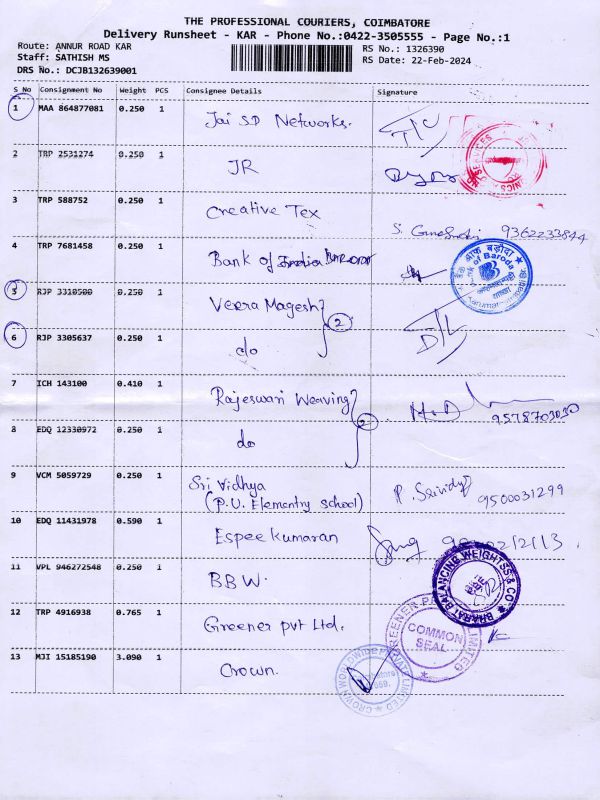 THE PROFESSIONAL COURIERS, COIMBATORE
Delivery Runsheet - KAR - Phone No.:0422-3505555 - Page No.:1
Route: ANNUR ROAD KAR
RS No.: 1326390
Staff: SATHISH MS
RS Date: 22-Feb-2024
DRS No.: DCJB132639001
S No Consignment No Weight PCS Consignee Details Signature
1 MAA 864877081 0.250 1 Jai S.D Networks.
2 TRP 2531274 0.250 1 JR
3 TRP 588752 1 Creative Tex S. 9362233844
4 TRP 7681458 0.250 1 Bank of India BARODA
बैंक ऑफ़ बड़ौदा
Bank of Baroda
5 RJP 3310500 0.250 1 Veera Magesh
2
6 RJP 3305637 0.250 1 do D/L
7 ICH 143100 0.410 1 Rajeswari Weaving
9578703030
2
8 EDQ 12330972 0.250 1 do
9 VCM 5059729 0.250 1 Sri Vidhya
(P.U. Elementry School) P. Srividya 9500031299
10 EDQ 11431978 0.590 1 Espee kumaran
11 VPL 946272548 0.250 1 BBW.
BHARAT BALANCING WEIGHTSS & CO
12 TRP 4916938 0.765 1 Greener pvt Ltd.
COMMON
SEAL
13 MJI 15185190 3.090 1 Crown.
CROWN WORLDWIDE PRIVATE LIMITED